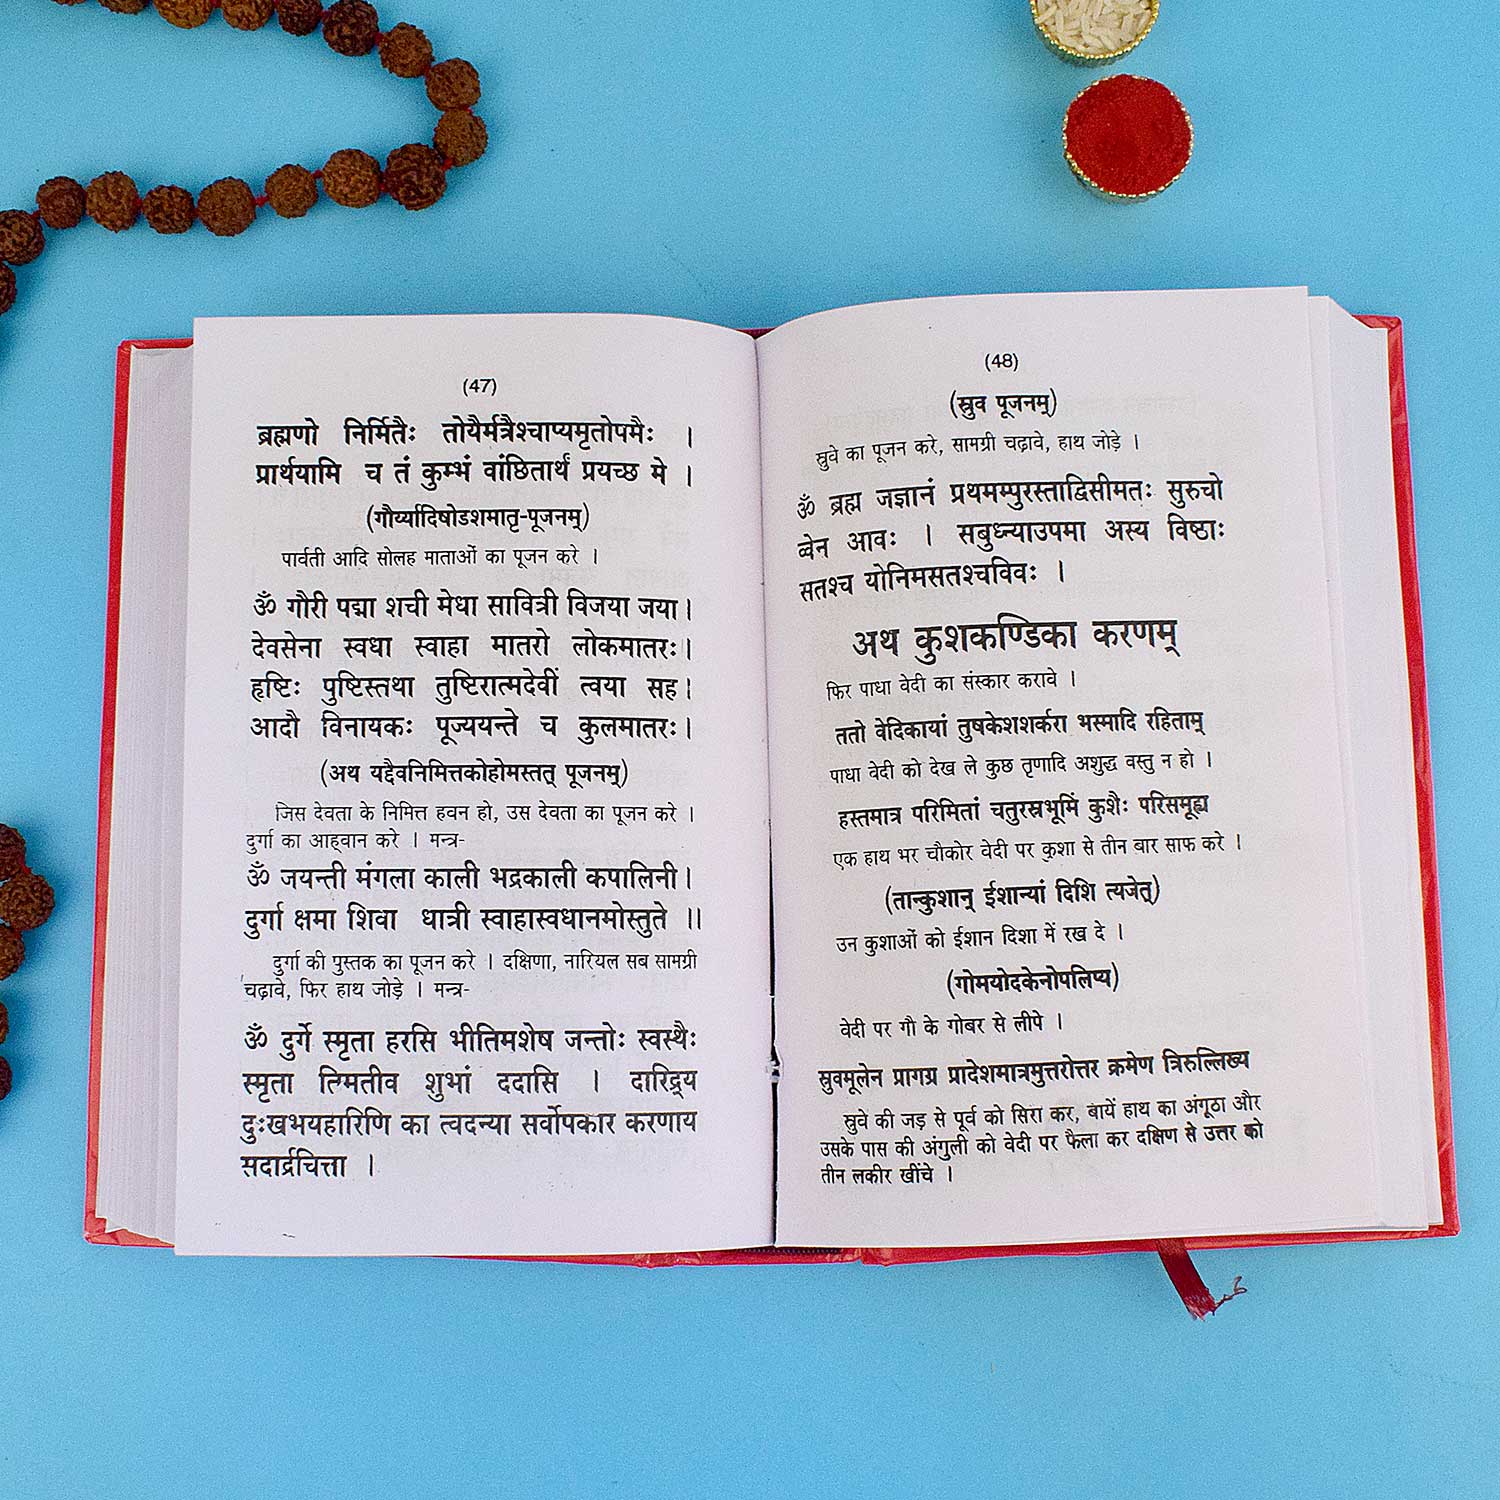 (47)
ब्रह्मणो निर्मितैः तोयैर्मत्रैश्चाप्यमृतोपमैः ।
प्रार्थयामि च तं कुम्भं वांछितार्थं प्रयच्छ मे ।
(गौर्य्यादिषोडशमातृ-पूजनम्)
पार्वती आदि सोलह माताओं का पूजन करे ।
ॐ गौरी पद्मा शची मेधा सावित्री विजया जया।
देवसेना स्वधा स्वाहा मातरो लोकमातरः।
हृष्टिः पुष्टिस्तथा तुष्टिरात्मदेवीं त्वया सह।
आदौ विनायकः पूज्ययन्ते च कुलमातरः।
(अथ यद्दैवनिमित्तकोहोमस्तत् पूजनम्)
जिस देवता के निमित्त हवन हो, उस देवता का पूजन करे ।
दुर्गा का आह्वान करे । मन्त्र-
ॐ जयन्ती मंगला काली भद्रकाली कपालिनी।
दुर्गा क्षमा शिवा धात्री स्वाहास्वधानमोस्तुते ।।
दुर्गा की पुस्तक का पूजन करे । दक्षिणा, नारियल सब सामग्री
चढ़ावे, फिर हाथ जोड़े । मन्त्र-
ॐ दुर्गे स्मृता हरसि भीतिमशेष जन्तोः स्वस्थैः
स्मृता तिमतीव शुभां ददासि । दारिद्र्य
दुःखभयहारिणि का त्वदन्या सर्वोपकार करणाय
सदार्द्रचित्ता ।
(48)
(स्रुव पूजनम्)
स्रुवे का पूजन करे, सामग्री चढ़ावे, हाथ जोड़े ।
ॐ ब्रह्म जज्ञानं प्रथमम्पुरस्ताद्विसीमतः सुरुचो
व्वेन आवः । सबुध्न्याउपमा अस्य विष्ठाः
सतश्च योनिमसतश्चविवः ।
अथ कुशकण्डिका करणम्
फिर पाधा वेदी का संस्कार करावे ।
ततो वेदिकायां तुषकेशशर्करा भस्मादि रहिताम्
पाधा वेदी को देख ले कुछ तृणादि अशुद्ध वस्तु न हो ।
हस्तमात्र परिमितां चतुरस्रभूमिं कुशैः परिसमूह्य
एक हाथ भर चौकोर वेदी पर कुशा से तीन बार साफ करे ।
(तान्कुशान् ईशान्यां दिशि त्यजेत्)
उन कुशाओं को ईशान दिशा में रख दे ।
(गोमयोदकेनोपलिप्य)
वेदी पर गौ के गोबर से लीपे ।
स्रुवमूलेन प्रागग्र प्रादेशमात्रमुत्तरोत्तर क्रमेण त्रिरुल्लिख्य
स्रुवे की जड़ से पूर्व को सिरा कर, बायें हाथ का अंगूठा और
उसके पास की अंगुली को वेदी पर फैला कर दक्षिण से उत्तर को
तीन लकीर खींचे ।